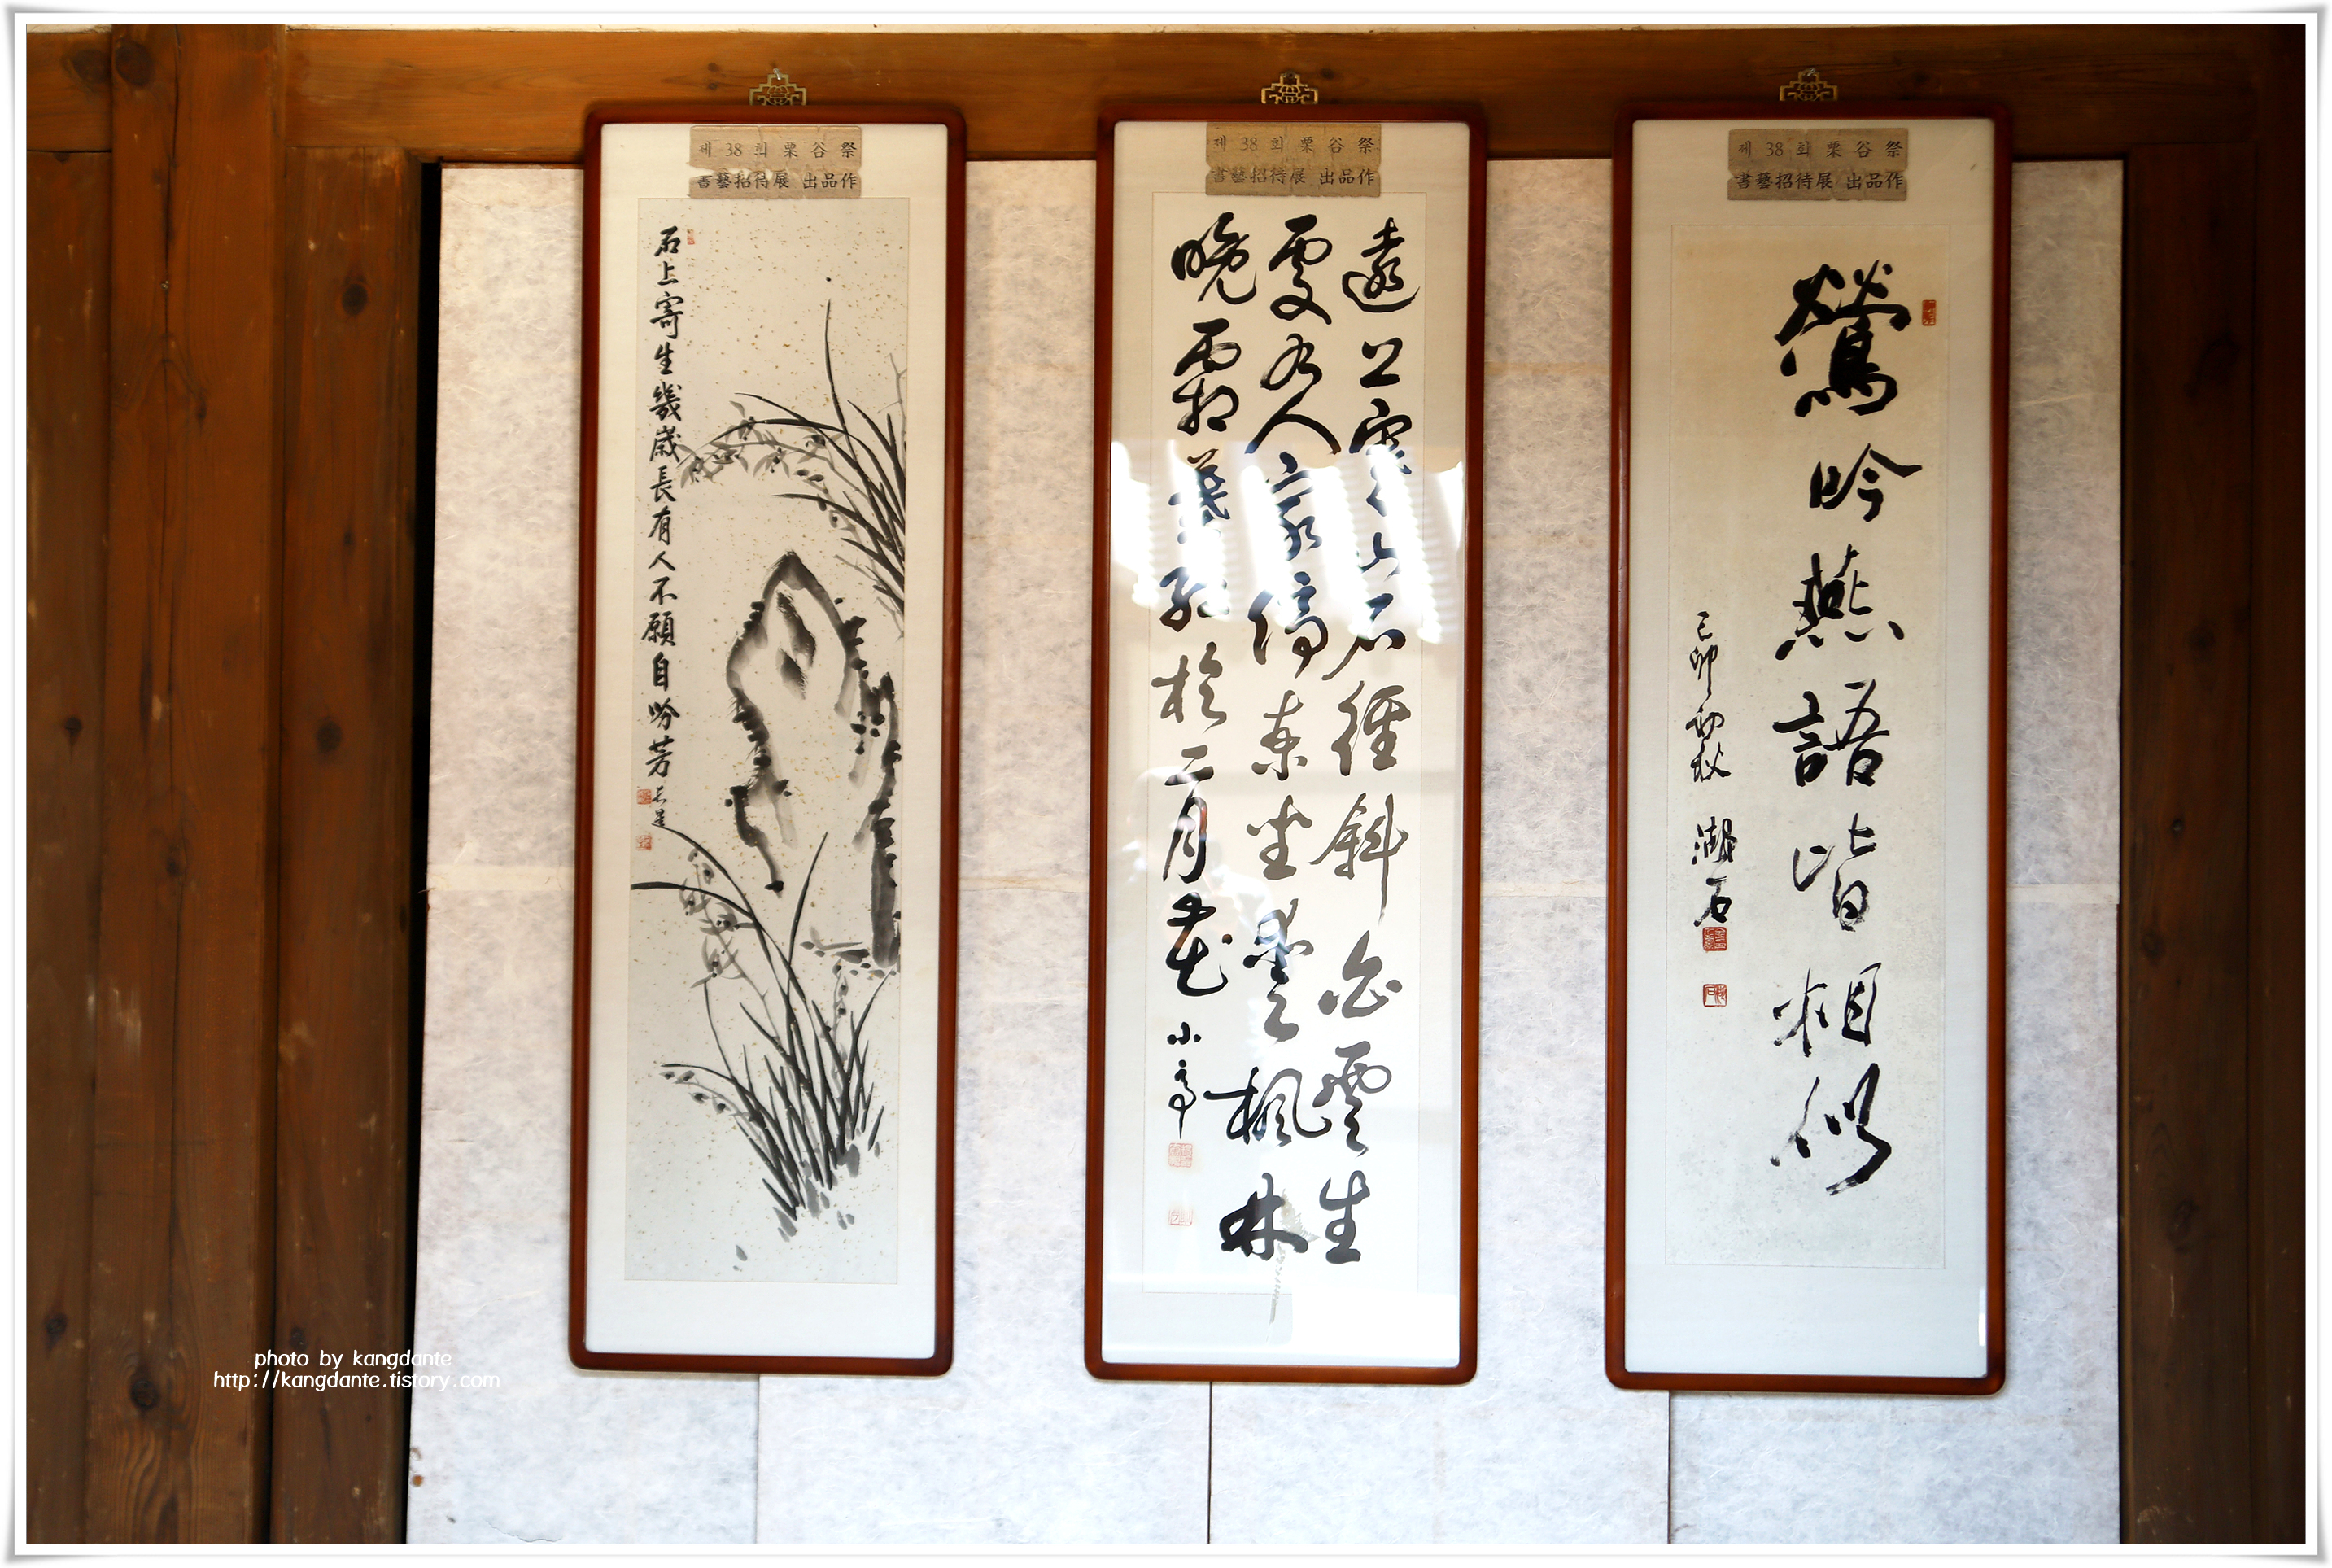 제 38 회 栗 谷 祭
書藝招待展 出品作
石上寄生幾歲長有人不願自吩芳
제 38 회 栗 谷 祭
書藝招待展 出品作
遠上寒山石徑斜白雲生
處有人家停車坐愛楓林
晩霜葉紅於二月花 小亭
제 38 회 栗 谷 祭
書藝招待展 出品作
鶯吟燕語皆相似
己卯初秋 湖石
photo by kangdante
http://kangdante.tistory.com